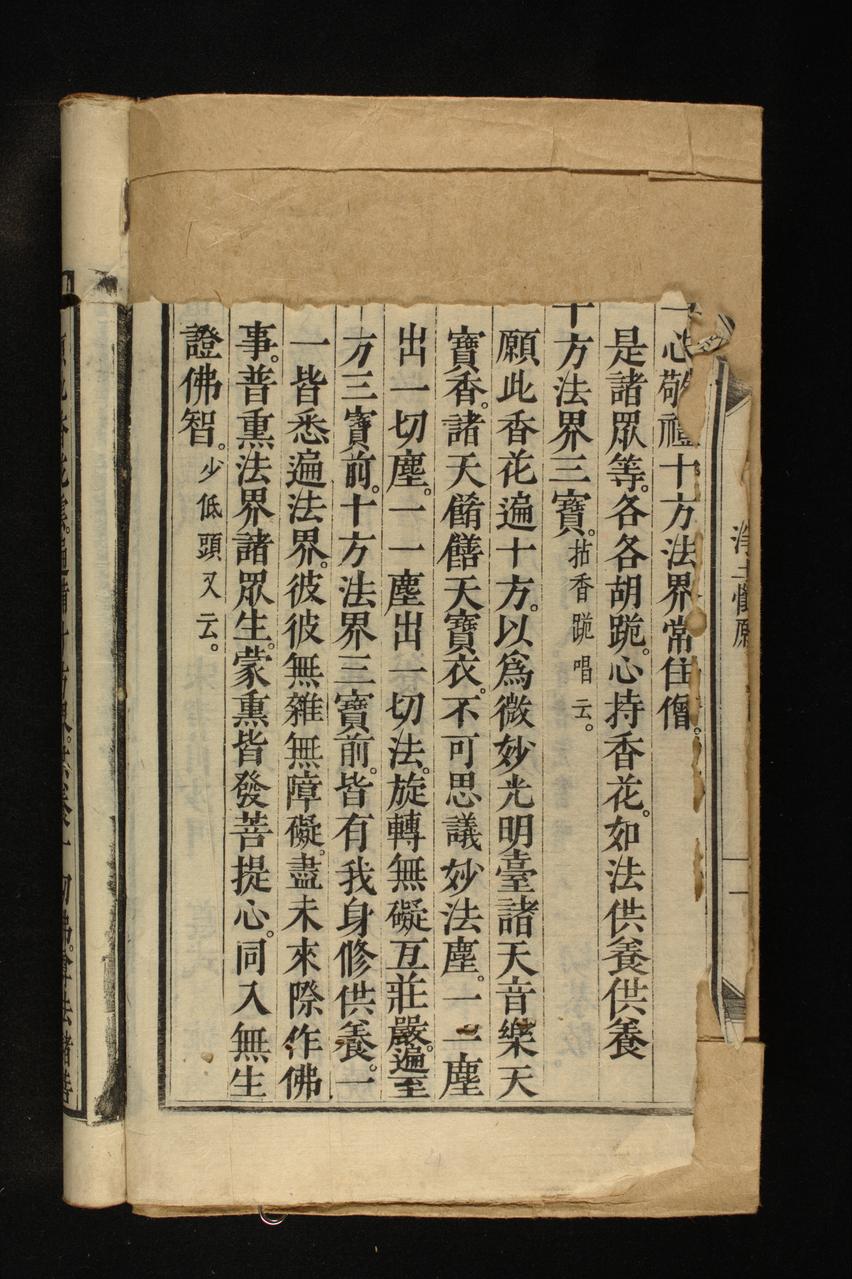 心敬禮十方法界常住僧。
是諸眾等。各各胡跪。心持香花。如法供養供養
十方法界三寶。拈香跪唱云。
願此香花遍十方。以爲微妙光明臺諸天音樂天
寶香。諸天餚饍天寶衣。不可思議妙法塵。一一塵
出一切塵。一一塵出一切法。旋轉無礙互莊嚴。遍至
十方三寶前。十方法界三寶前。皆有我身修供養。一
一皆悉遍法界。彼彼無雜無障礙。盡未來際作佛
事。普熏法界諸眾生。蒙熏皆發菩提心。同入無生
證佛智。少低頭又云。